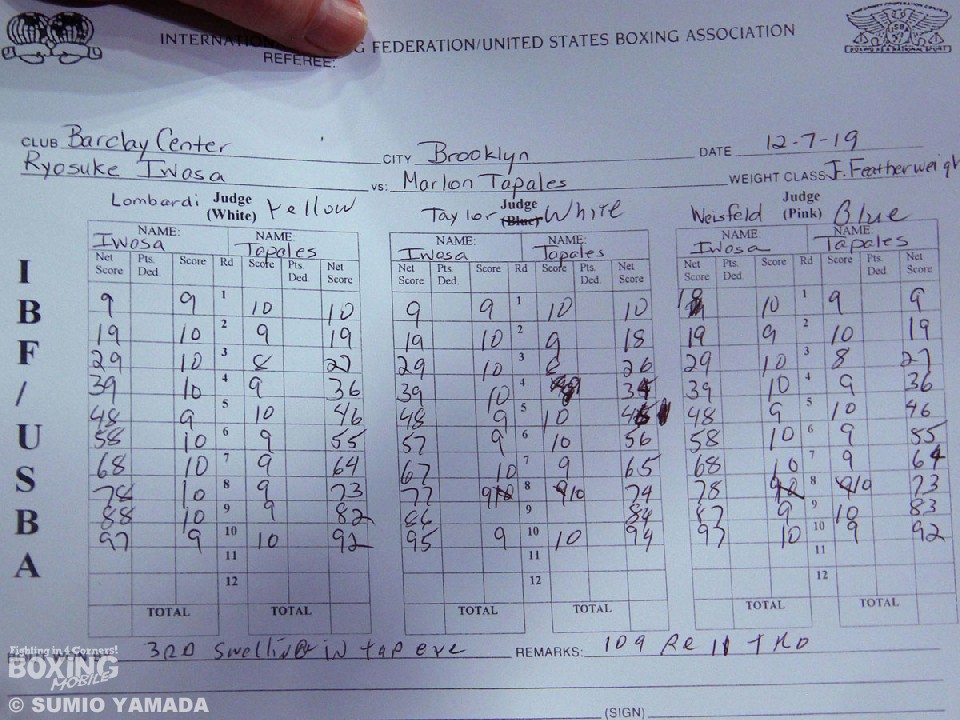 INTERNATIONAL FEDERATION/UNITED STATES BOXING ASSOCIATION
REFEREE:
CLUB Barclay Center CITY Brooklyn DATE 12-7-19
Ryosuke Iwasa vs: Marlon Tapales WEIGHT CLASS J. Featherweigh
Lombardi Judge (White) Yellow Taylor Judge (Blue) White Weisfeld Judge (Pink) Blue
NAME: NAME: NAME: NAME: NAME: NAME:
Iwasa Tapales Iwasa Tapales Iwasa Tapales
Net Score Pts. Ded. Score Rd Score Pts. Ded. Net Score Net Score Pts. Ded. Score Rd Score Pts. Ded. Net Score Net Score Pts. Ded. Score Rd Score Pts. Ded. Net Score
9 9 1 10 10 9 9 1 10 10 10 1 9 9
19 10 2 9 19 19 10 2 9 18 19 9 2 10 19
29 10 3 8 27 29 10 3 8 26 29 10 3 8 27
39 10 4 9 36 39 10 4 34 39 10 4 9 36
48 9 5 10 46 48 9 5 10 48 9 5 10 46
58 10 6 9 55 57 9 6 10 56 58 10 6 9 55
68 10 7 9 64 67 10 7 9 65 68 10 7 9 64
78 10 8 9 73 77 8 74 78 8 73
88 10 9 9 82 86 9 84 87 9 9 10 83
97 9 10 10 92 95 9 10 10 94 97 10 10 9 92
11 11 11
12 12 12
TOTAL TOTAL TOTAL TOTAL TOTAL TOTAL
IBF/USBA
3RD swelling in tap eye REMARKS: 109 Re 11 TKO
(SIGN)
Fighting in 4 Corners!
BOXING
MOBILE
© SUMIO YAMADA